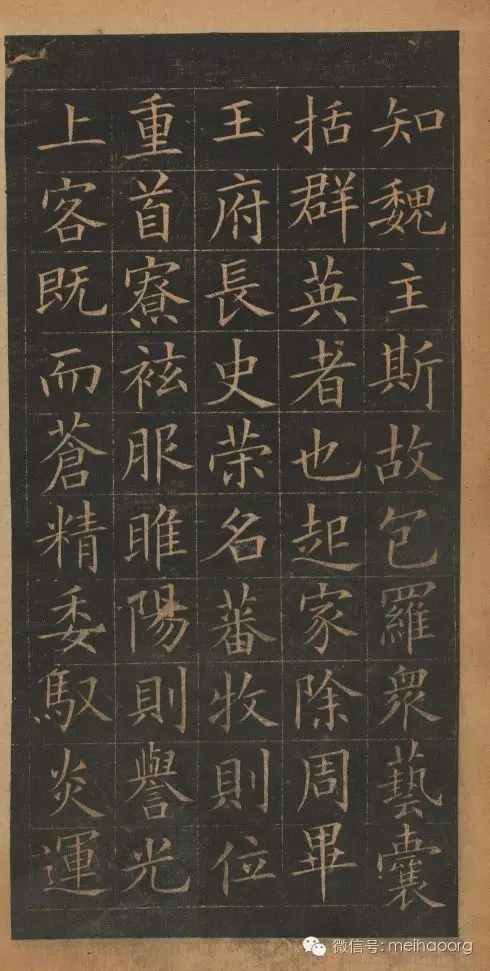 知魏主斯故包羅衆藝囊
括群英者也起家除周畢
王府長史荣名蕃牧則位
重首寮袨服睢陽則譽光
上客既而蒼精委馭炎運
微信号: meihaoorg